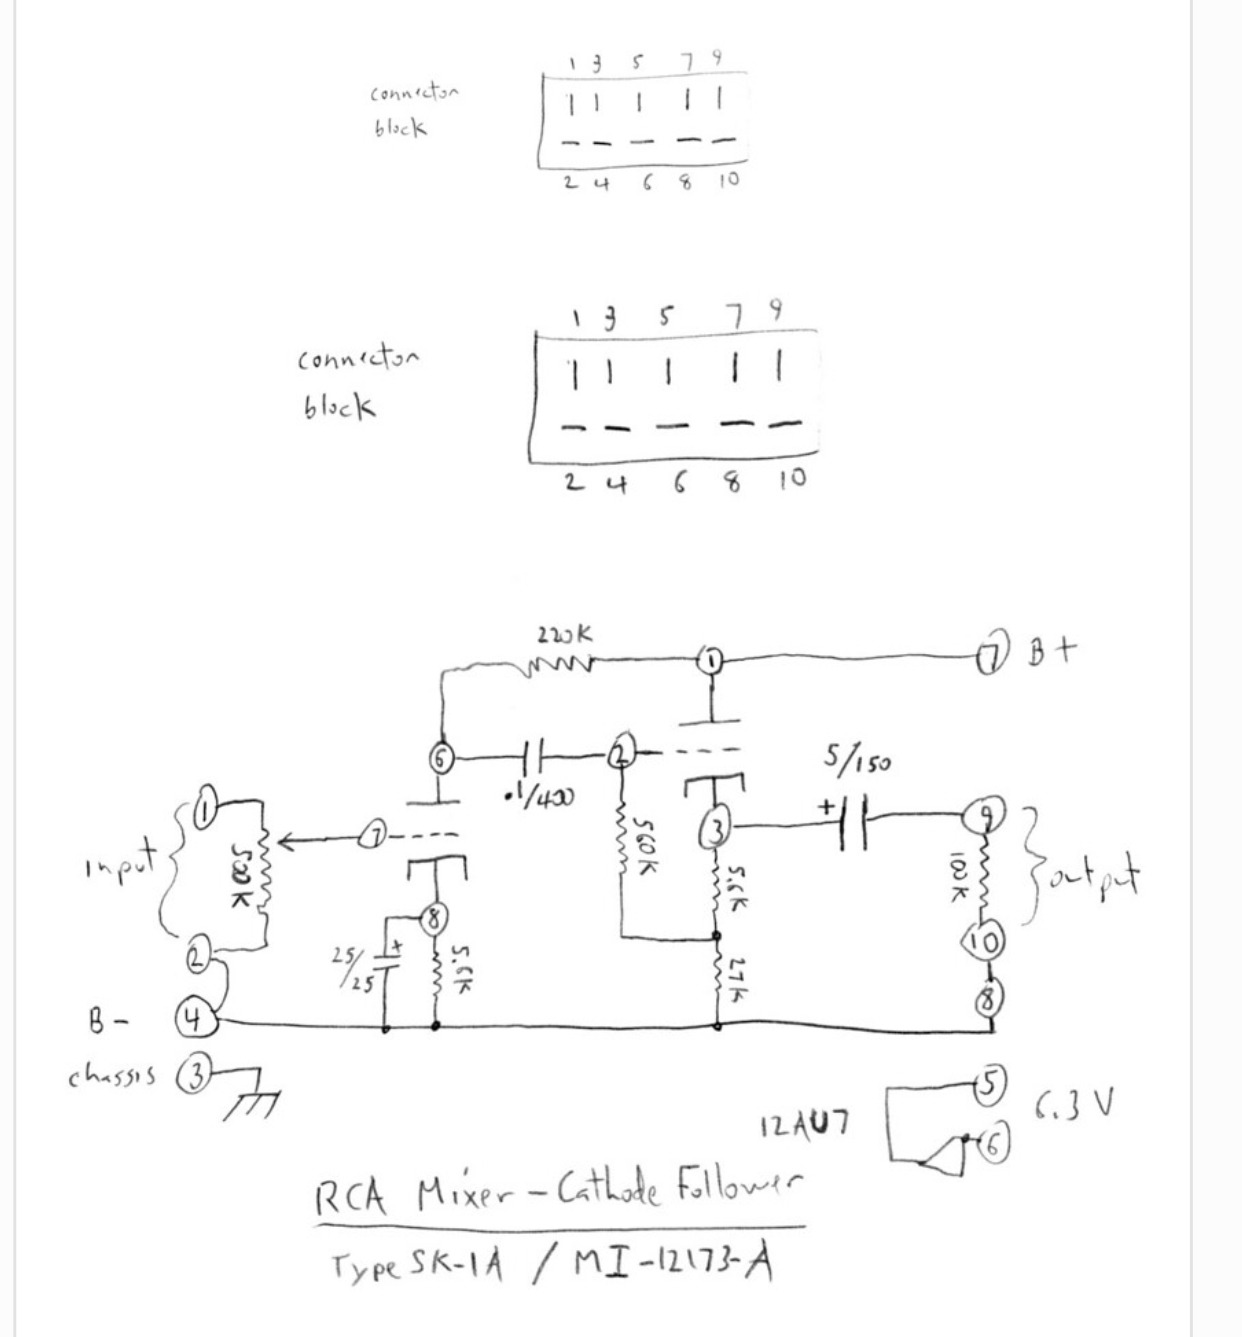 1 3 5 7 9
connector
block
2 4 6 8 10
1 3 5 7 9
connector
block
2 4 6 8 10
220K
1
7 B+
6
2
.1/400
5/150
1
+
9
input
500K
7
560K
3
5.6K
100K
output
8
2
25/25
+
5.6K
27K
10
8
B- 4
chassis 3
5
12AU7
6.3V
6
RCA Mixer-Cathode Follower
Type SK-1A / MI-12173-A